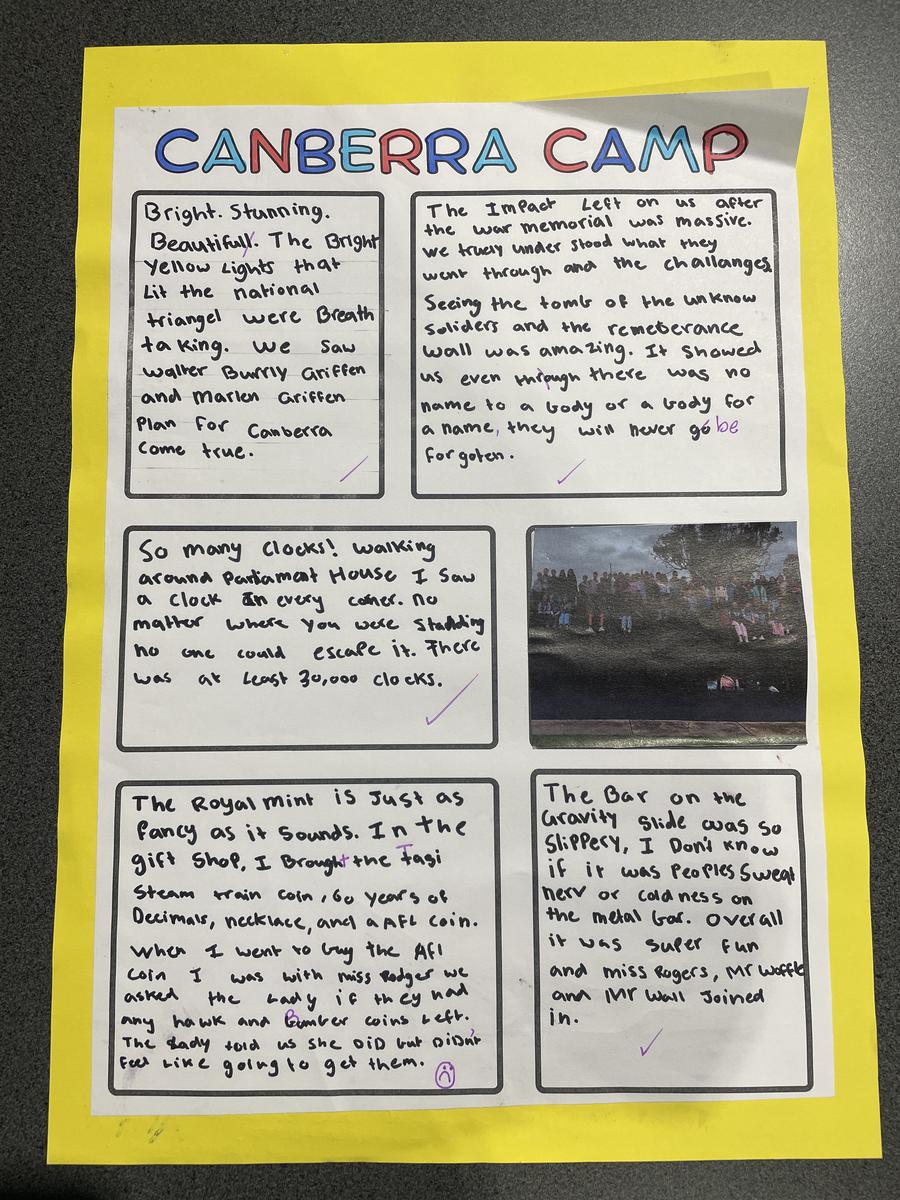 CANBERRA CAMP
Bright. Stunning.
Beautifull. The Bright
Yellow Lights that
Lit the national
triangel were Breath
taking. We Saw
Walter Burrly Griffen
and Marlen Griffen
Plan for Canberra
Come true.
The Impact Left on us after
the war memorial was massive.
we truely under stood what they
went through and the challanges
Seeing the tomb of the unknow
Soliders and the remeberance
wall was amazing. It Showed
us even through there was no
name to a body or a body for
a name, they will never go be
forgoten.
So many Clocks! walking
around Parliament House I Saw
a Clock In every corner. no
matter where you were Standding
no one could escape it. There
was at least 30,000 clocks.
The Royal mint is Just as
fancy as it Sounds. In the
gift Shop, I Brought the Tasi
Steam train coin, 60 years of
Decimals, necklace, and a AFL coin.
When I went to buy the Afl
Coin I was with miss Rodger we
asked the Lady if they had
any hawk and Bomber coins Left.
The Lady told us She DiD but DiDn't
Feel Like going to get them.
The Bar on the
Gravity Slide was So
Slippery, I Don't know
if it was Peoples Sweat
nerv or coldness on
the metal bar. Overall
it was Super fun
and miss Rogers, Mr Waffle
and Mr Wall Joined
in.